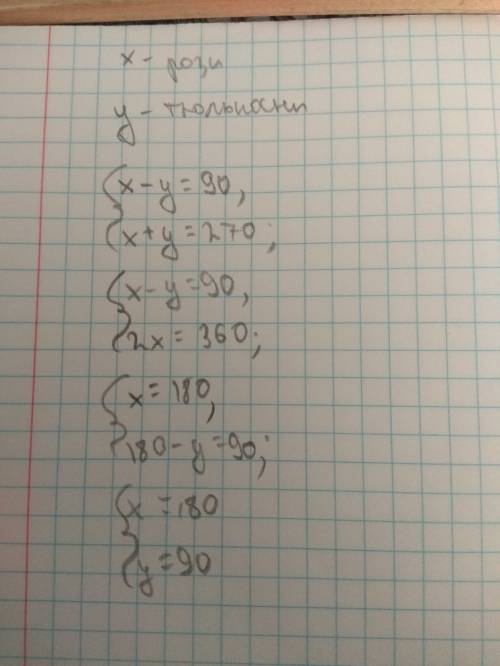 x - рози
y - тюльпани
{ x - y = 90,
x + y = 270;
{ x - y = 90,
2x = 360;
{ x = 180,
180 - y = 90;
{ x = 180
y = 90